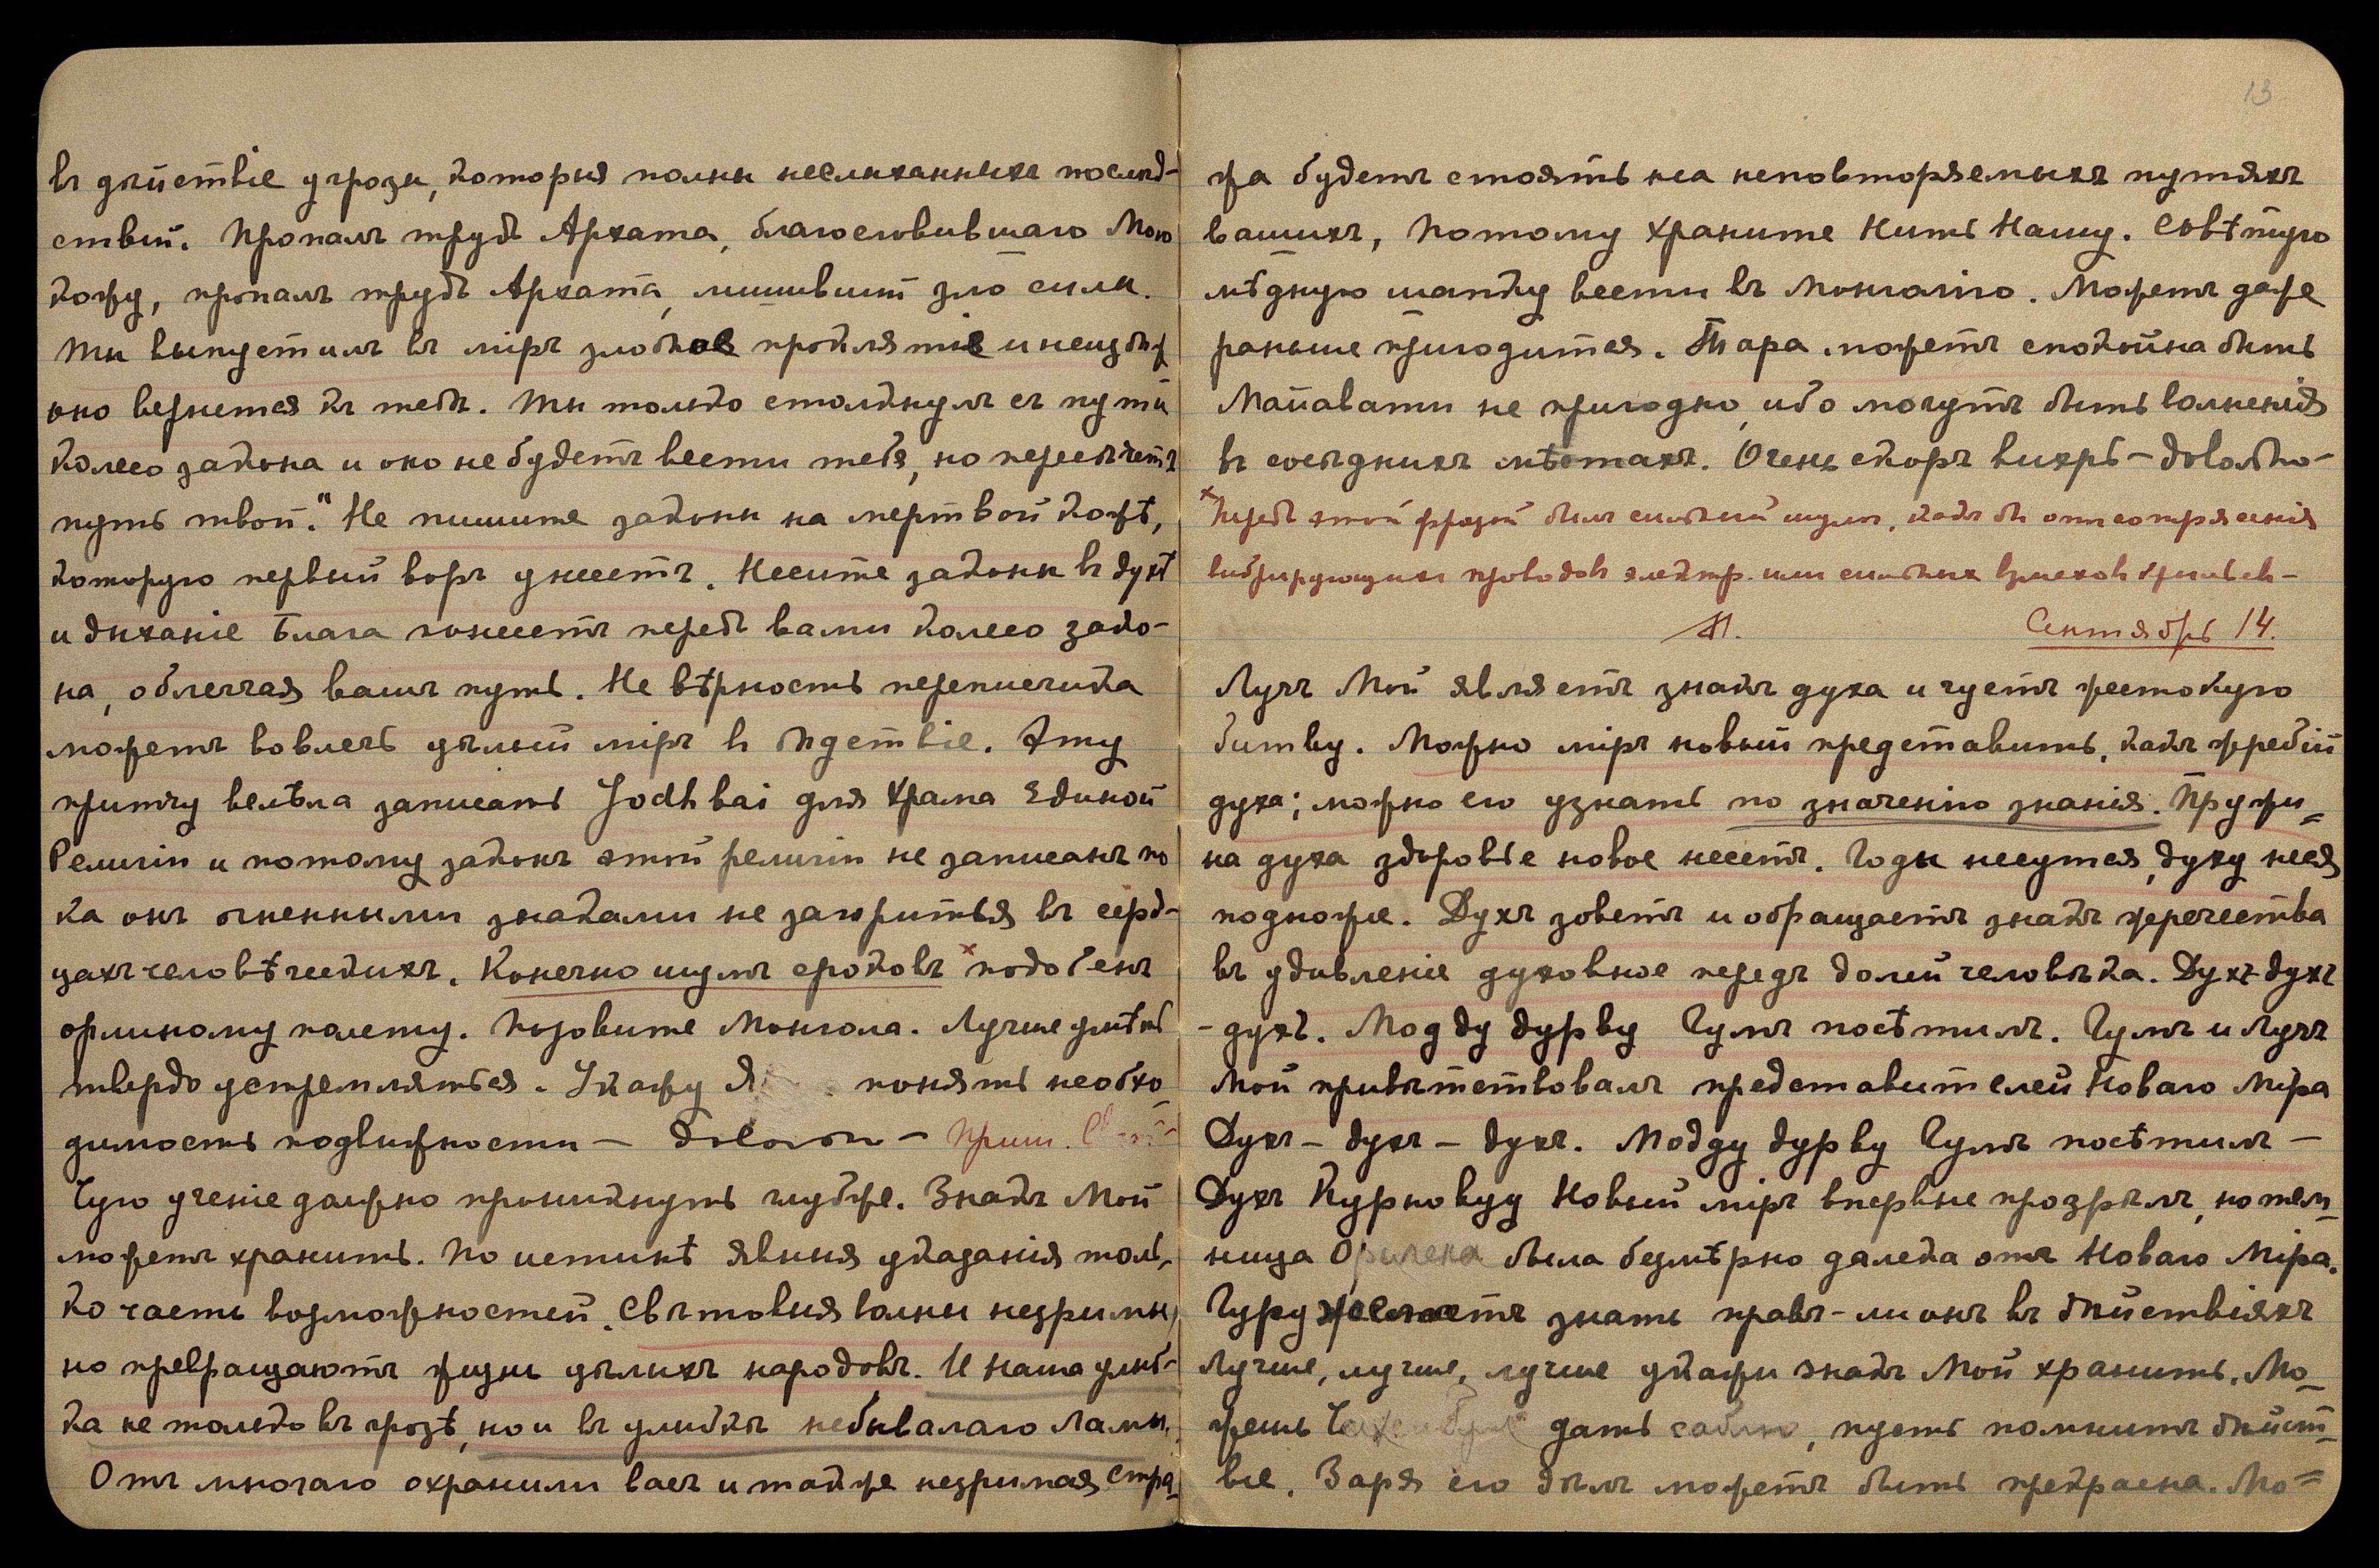 въ дѣйствіе угрозы, которыя полны неслыханныхъ послѣд-
ствій. Пропалъ трудъ Архата, благословившаго Мою
кожу, пропалъ трудъ Архата, лишившій зло силы.
Ты выпустилъ въ міръ злобное проклятіе и неизбѣж
оно вернется къ тебѣ. Ты только столкнулъ съ пути
колесо закона и оно не будетъ вести тебя, но пересѣчетъ
путь твой." Не пишите законы на мертвой кожѣ,
которую первый воръ унесетъ. Несите законы въ духѣ
и дыханіе Блага понесетъ передъ вами колесо зако-
на, облегчая вашъ путь. Не вѣрность переписчика
можетъ вовлечь цѣлый міръ въ бѣдствіе. Эту
притчу велѣла записать Jodhbai для Храма Единой
Религіи и потому законъ этой религіи не записанъ по
ка онъ огненными знаками не загорится въ серд-
цахъ человѣческихъ. Конечно шумъ сроковъ ˣ подобенъ
орлиному полету. Позовите Монгола. Лучше умѣть
твердо устремляться. Укажу Я понять необхо
димость подвижности – довольно – Прим.
Чую ученіе должно проникнуть глубже. Знакъ Мой
можетъ хранить. По истинѣ явныя указанія толь-
ко часть возможностей. Свѣтовыя волны незримы,
но превращаютъ жизнь цѣлыхъ народовъ. И наша улыб-
ка не только въ грозѣ, но и въ улыбкѣ небывалаго Ламы.
Отъ многаго охранили васъ и также незримая стра-
13
жа будетъ стоять на неповторяемыхъ путяхъ
вашихъ, потому храните Нить Нашу. Совѣтую
мѣдную шапку вести въ Монголію. Можетъ даже
раньше пригодится. Тара можетъ спокойна быть
Майавати не пригодно, ибо могутъ быть волненія
въ сосѣднихъ мѣстахъ. Очень скоръ вихрь – довольно –
ˣ Передъ этой фразой былъ сильный шумъ, какъ бы отъ сотрясенія
вибрирующихъ проводовъ электр. или сильныхъ взмаховъ крыльевъ –
Сентябрь 14.
Лучъ Мой являетъ знакъ духа и чуетъ жестокую
битву. Можно міръ новый представить, какъ жребій
духа; можно его узнать по значенію знанія. Пружи-
на духа здоровье новое несетъ. Годы несутся, духу неся
подножіе. Духъ зоветъ и обращаетъ знакъ жречества
въ удивленіе духовное передъ долей человѣка. Духъ-духъ
– духъ. Модду дурву Чумъ посѣтилъ. Чумъ и Лучъ
Мой привѣтствовалъ представителей Новаго Міра
Духъ – духъ – духъ. Модду дурву Чумъ посѣтилъ –
Духъ Курновуу Новый міръ впервые прозрѣлъ, но тем-
ница была безмѣрно далека отъ Новаго Міра.
Гуру желаетъ знать правъ-ли онъ въ дѣйствіяхъ
Лучше, лучше, лучше укажи знакъ Мой хранить. Мо-
жешь дать саблю, пусть помнитъ дѣйст-
віе. Заря его дѣлъ можетъ быть прекрасна. Мо-